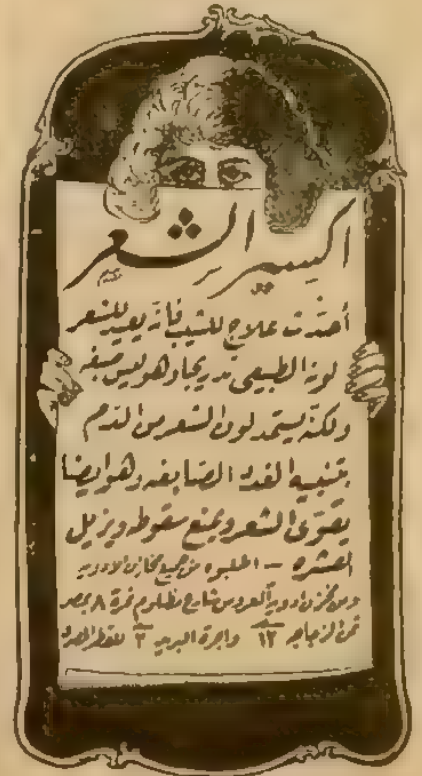 اكسير الشعر
أحدث علاج للشيب فأنه يعيد للشعر
لونه الطبيعى تدريجا وهو ليس صبغه
ولكنه يستمد لون الشعر من الدم
بتنبيه الغدد الصابغه وهو ايضا
يقوّى الشعر ويمنع سقوطه ويزيل
القشره – اطلبوه من جميع مخازن الادويه
ومن مخزن ادوية العروس شارع مظلوم نمرة ٨ بمصر
ثمن الزجاجه ١٢ واجرة البريد ٣ للقطر المصرى